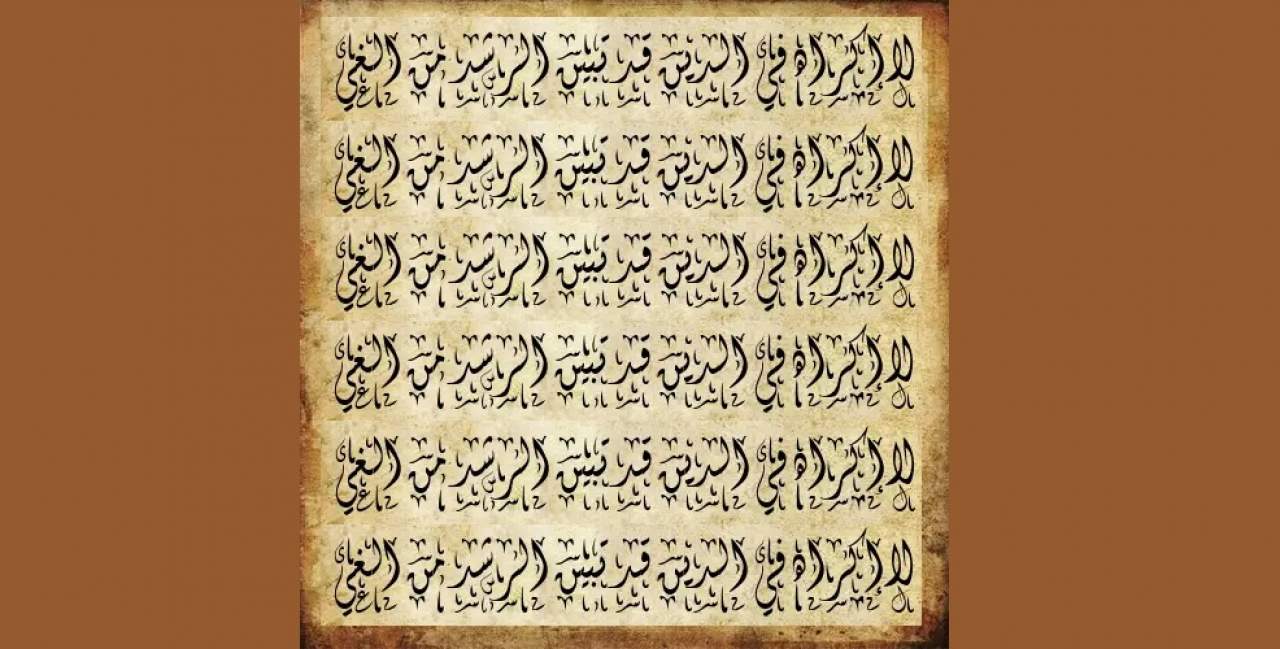 لا إكراه في الدين قد تبين الرشد من الغي
لا إكراه في الدين قد تبين الرشد من الغي
لا إكراه في الدين قد تبين الرشد من الغي
لا إكراه في الدين قد تبين الرشد من الغي
لا إكراه في الدين قد تبين الرشد من الغي
لا إكراه في الدين قد تبين الرشد من الغي